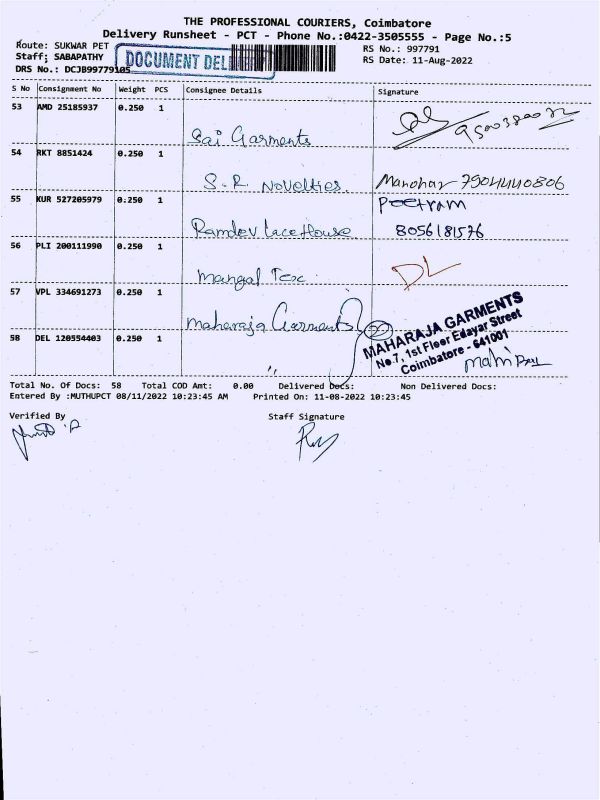 THE PROFESSIONAL COURIERS, Coimbatore
Delivery Runsheet - PCT - Phone No.:0422-3505555 - Page No.:5
Route: SUKWAR PET
RS No.: 997791
Staff: SABAPATHY
RS Date: 11-Aug-2022
DOCUMENT DEL
DRS No.: DCJB99779105
S No Consignment No Weight PCS Consignee Details Signature
53 AMD 25185937 0.250 1
Sai Garments
54 RKT 8851424 0.250 1
S.R. Novelties. Manohar 7904440806
55 KUR 527205979 0.250 1
Ramdev Lace House 8056181576
56 PLI 200111990 0.250 1
Mangal Tex. DL
57 VPL 334691273 0.250 1
Maharaja Garments (2)
MAHARAJA GARMENTS
No.7, 1st Floor Edayar Street
Coimbatore - 641001
58 DEL 120554403 0.250 1
〃
Total No. Of Docs: 58 Total COD Amt: 0.00 Delivered Docs: Non Delivered Docs:
Entered By :MUTHUPCT 08/11/2022 10:23:45 AM Printed On: 11-08-2022 10:23:45
Verified By Staff Signature